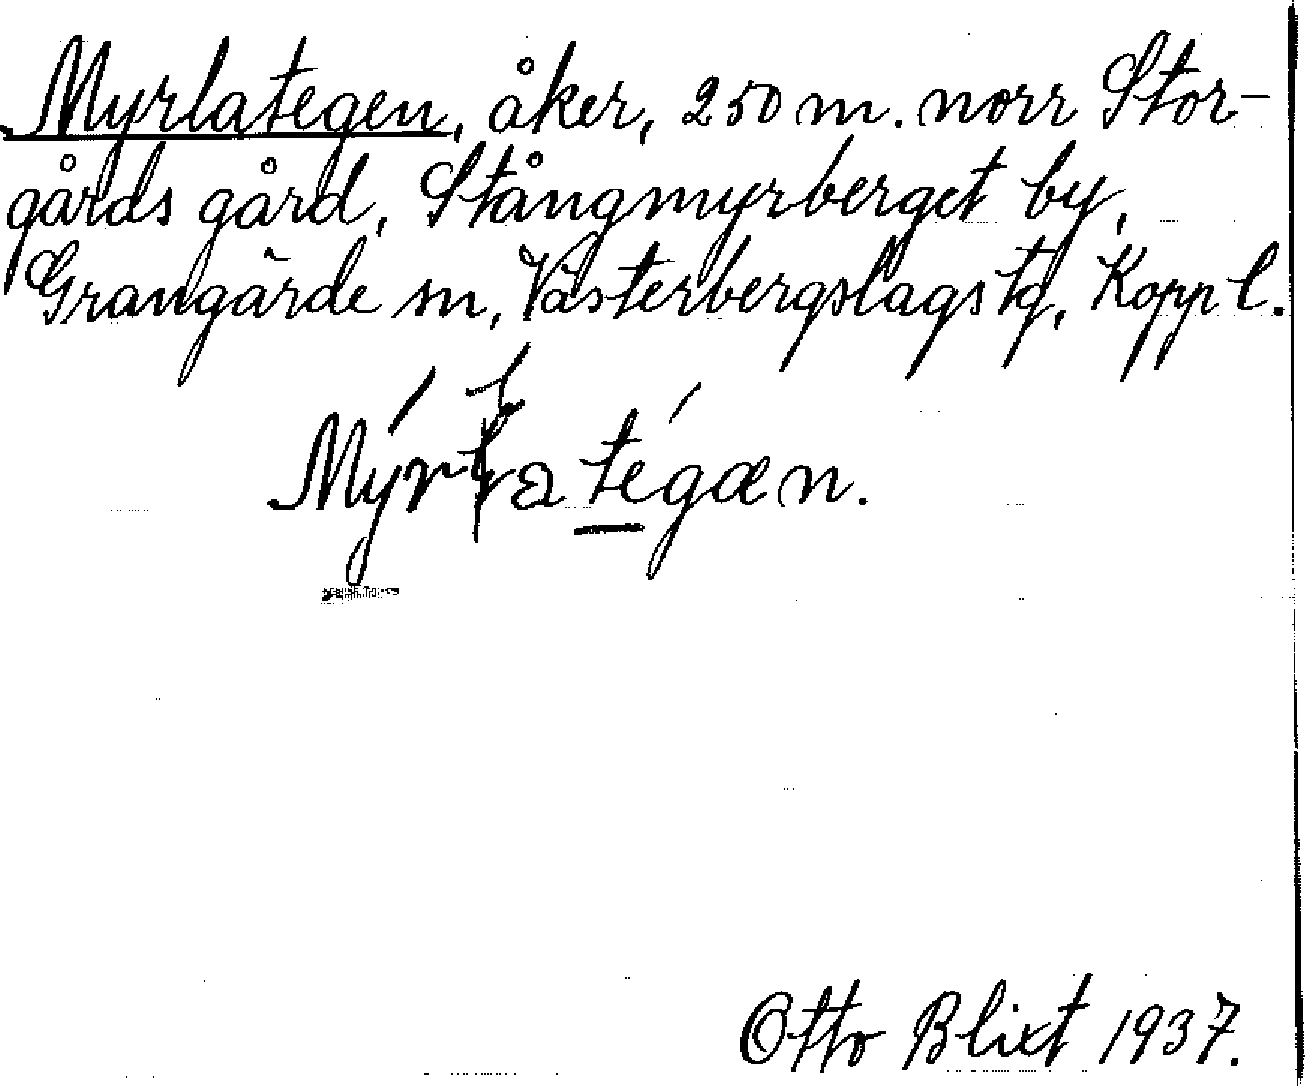 Myrlategen, åker, 250 m. norr Stor-
gårds gård, Stångmyrberget by,
Grangärde sn, Västerbergslags tg, Kopp l.
tégæn.
Otto Blixt 1937.